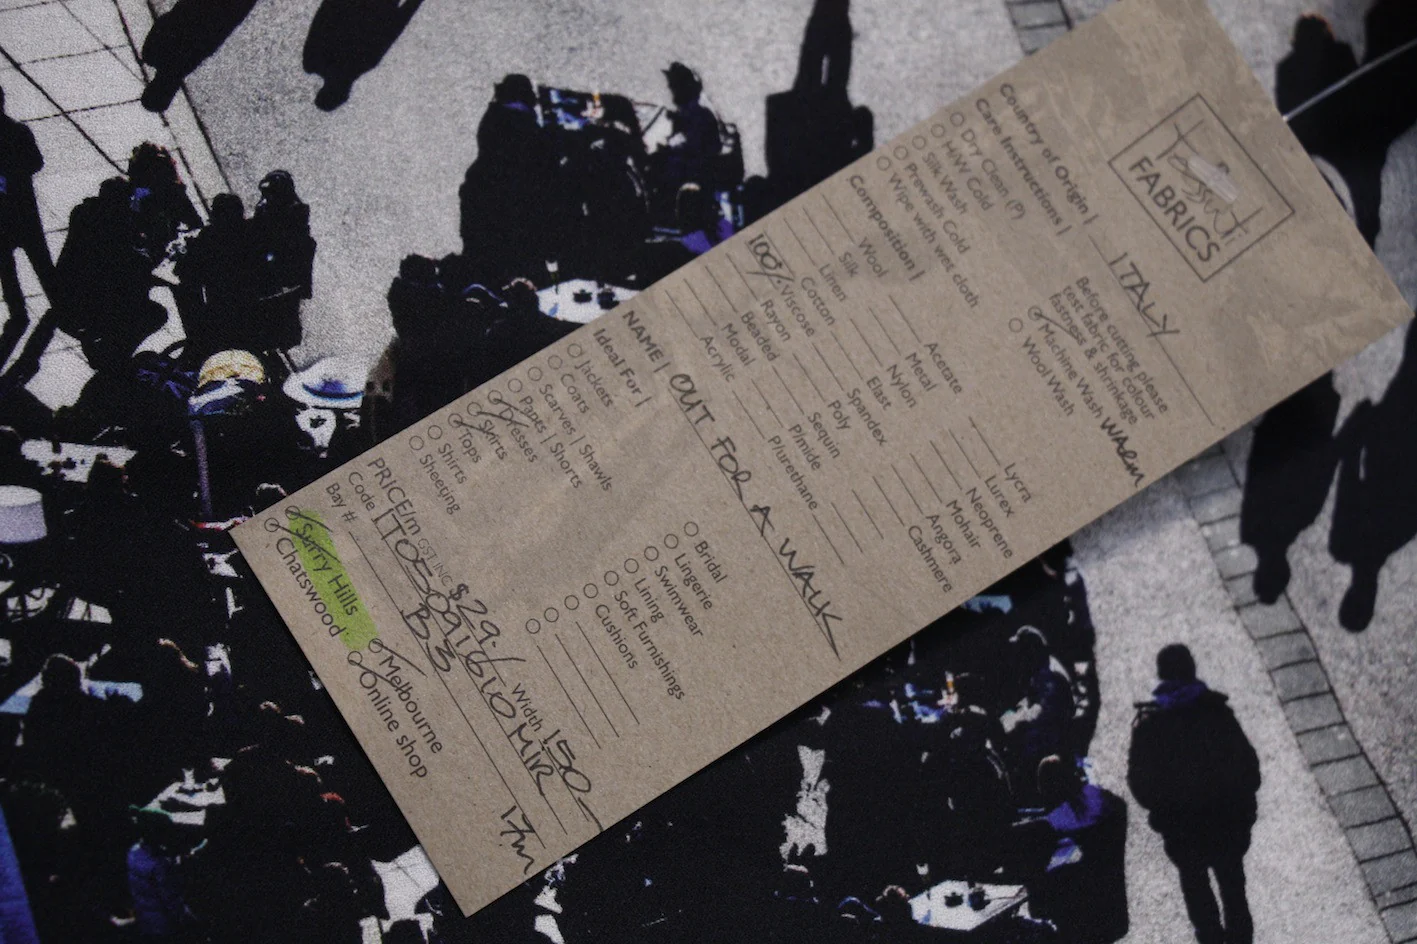 Tessuti
FABRICS
Country of Origin | ITALY
Care Instructions |
Dry Clean (P)
H/W Cold
Silk Wash
Prewash Cold
Wipe with wet cloth
Before cutting please
test fabric for colour
fastness & shrinkage
Machine Wash WARM
Wool Wash
Composition |
Wool
Silk
Linen
Cotton
100% Viscose
Rayon
Beaded
Modal
Acrylic
Acetate
Metal
Nylon
Elast
Spandex
Poly
Sequin
P/mide
P/urethane
Lycra
Lurex
Neoprene
Mohair
Angora
Cashmere
NAME | OUT FOR A WALK
Ideal For |
Jackets
Coats
Scarves | Shawls
Pants | Shorts
Dresses
Skirts
Tops
Shirts
Sheeting
Bridal
Lingerie
Swimwear
Lining
Soft Furnishings
Cushions
PRICE/m GST INC $29.- Width 150-
Code
Bay # B3 17m
Surry Hills
Chatswood
Melbourne
Online shop